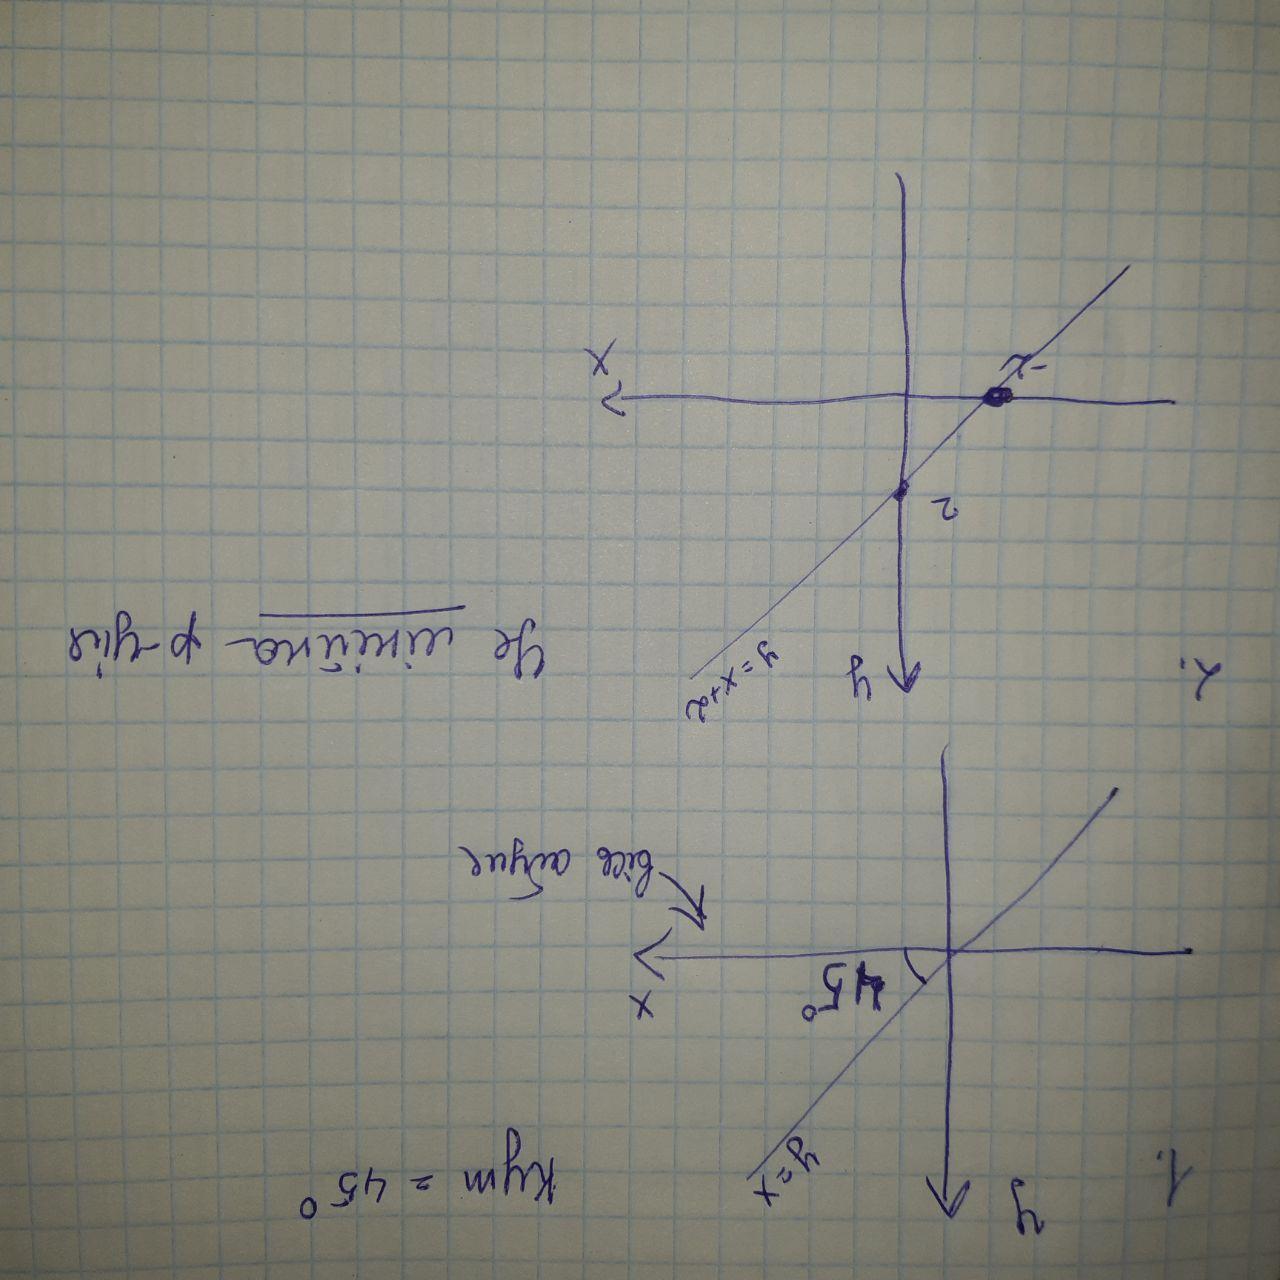 1.
y
y=x
Кут = 45°
45°
x
вісь абцис
2.
y
y=x+2
Це лінійна ф-ція
2
-2
x